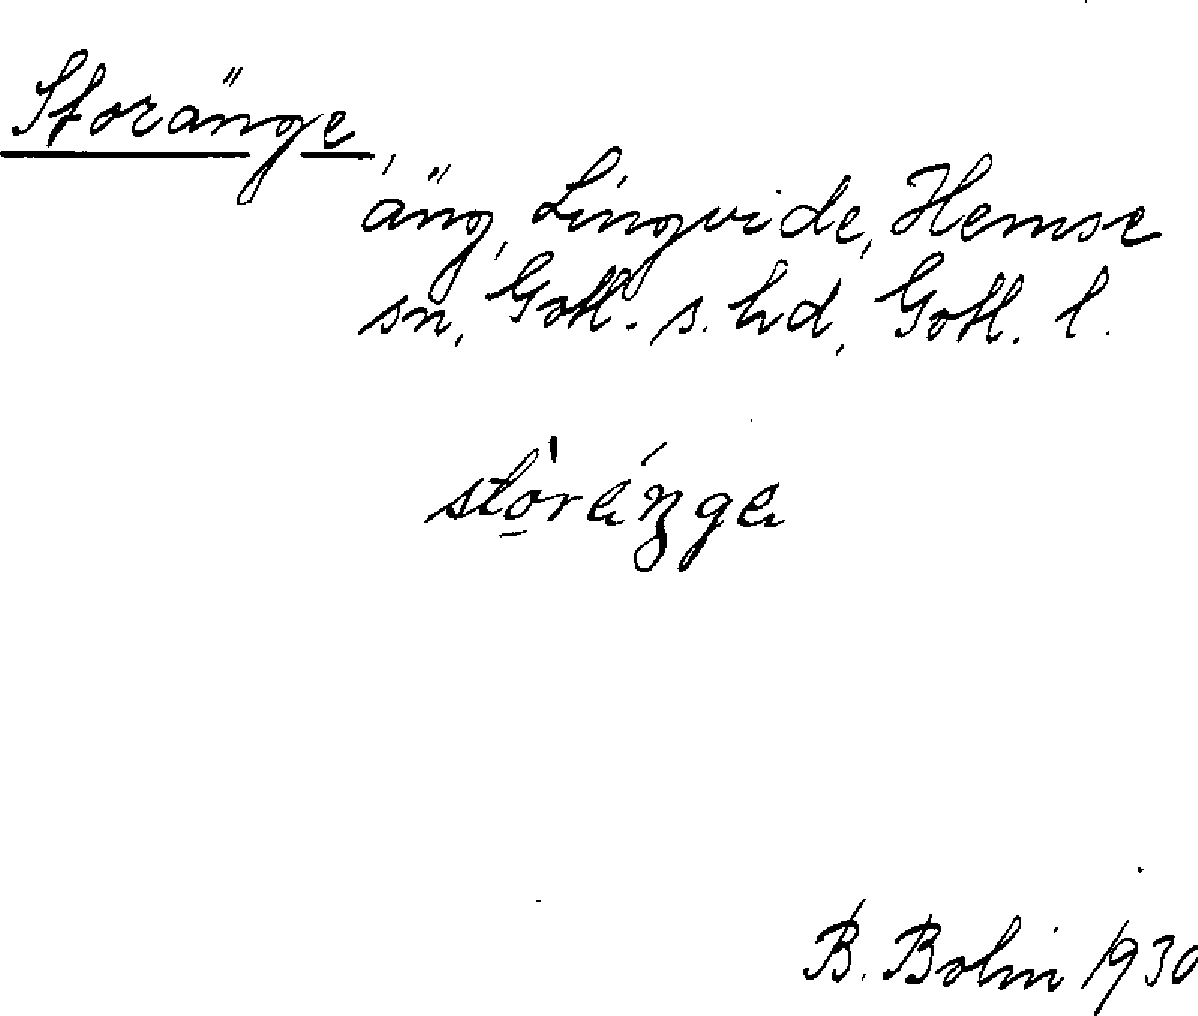 Storänge,
äng, Lingvide, Hemse
sn, Gotl. s. hd, Gotl. l.
B. Bolin 1930